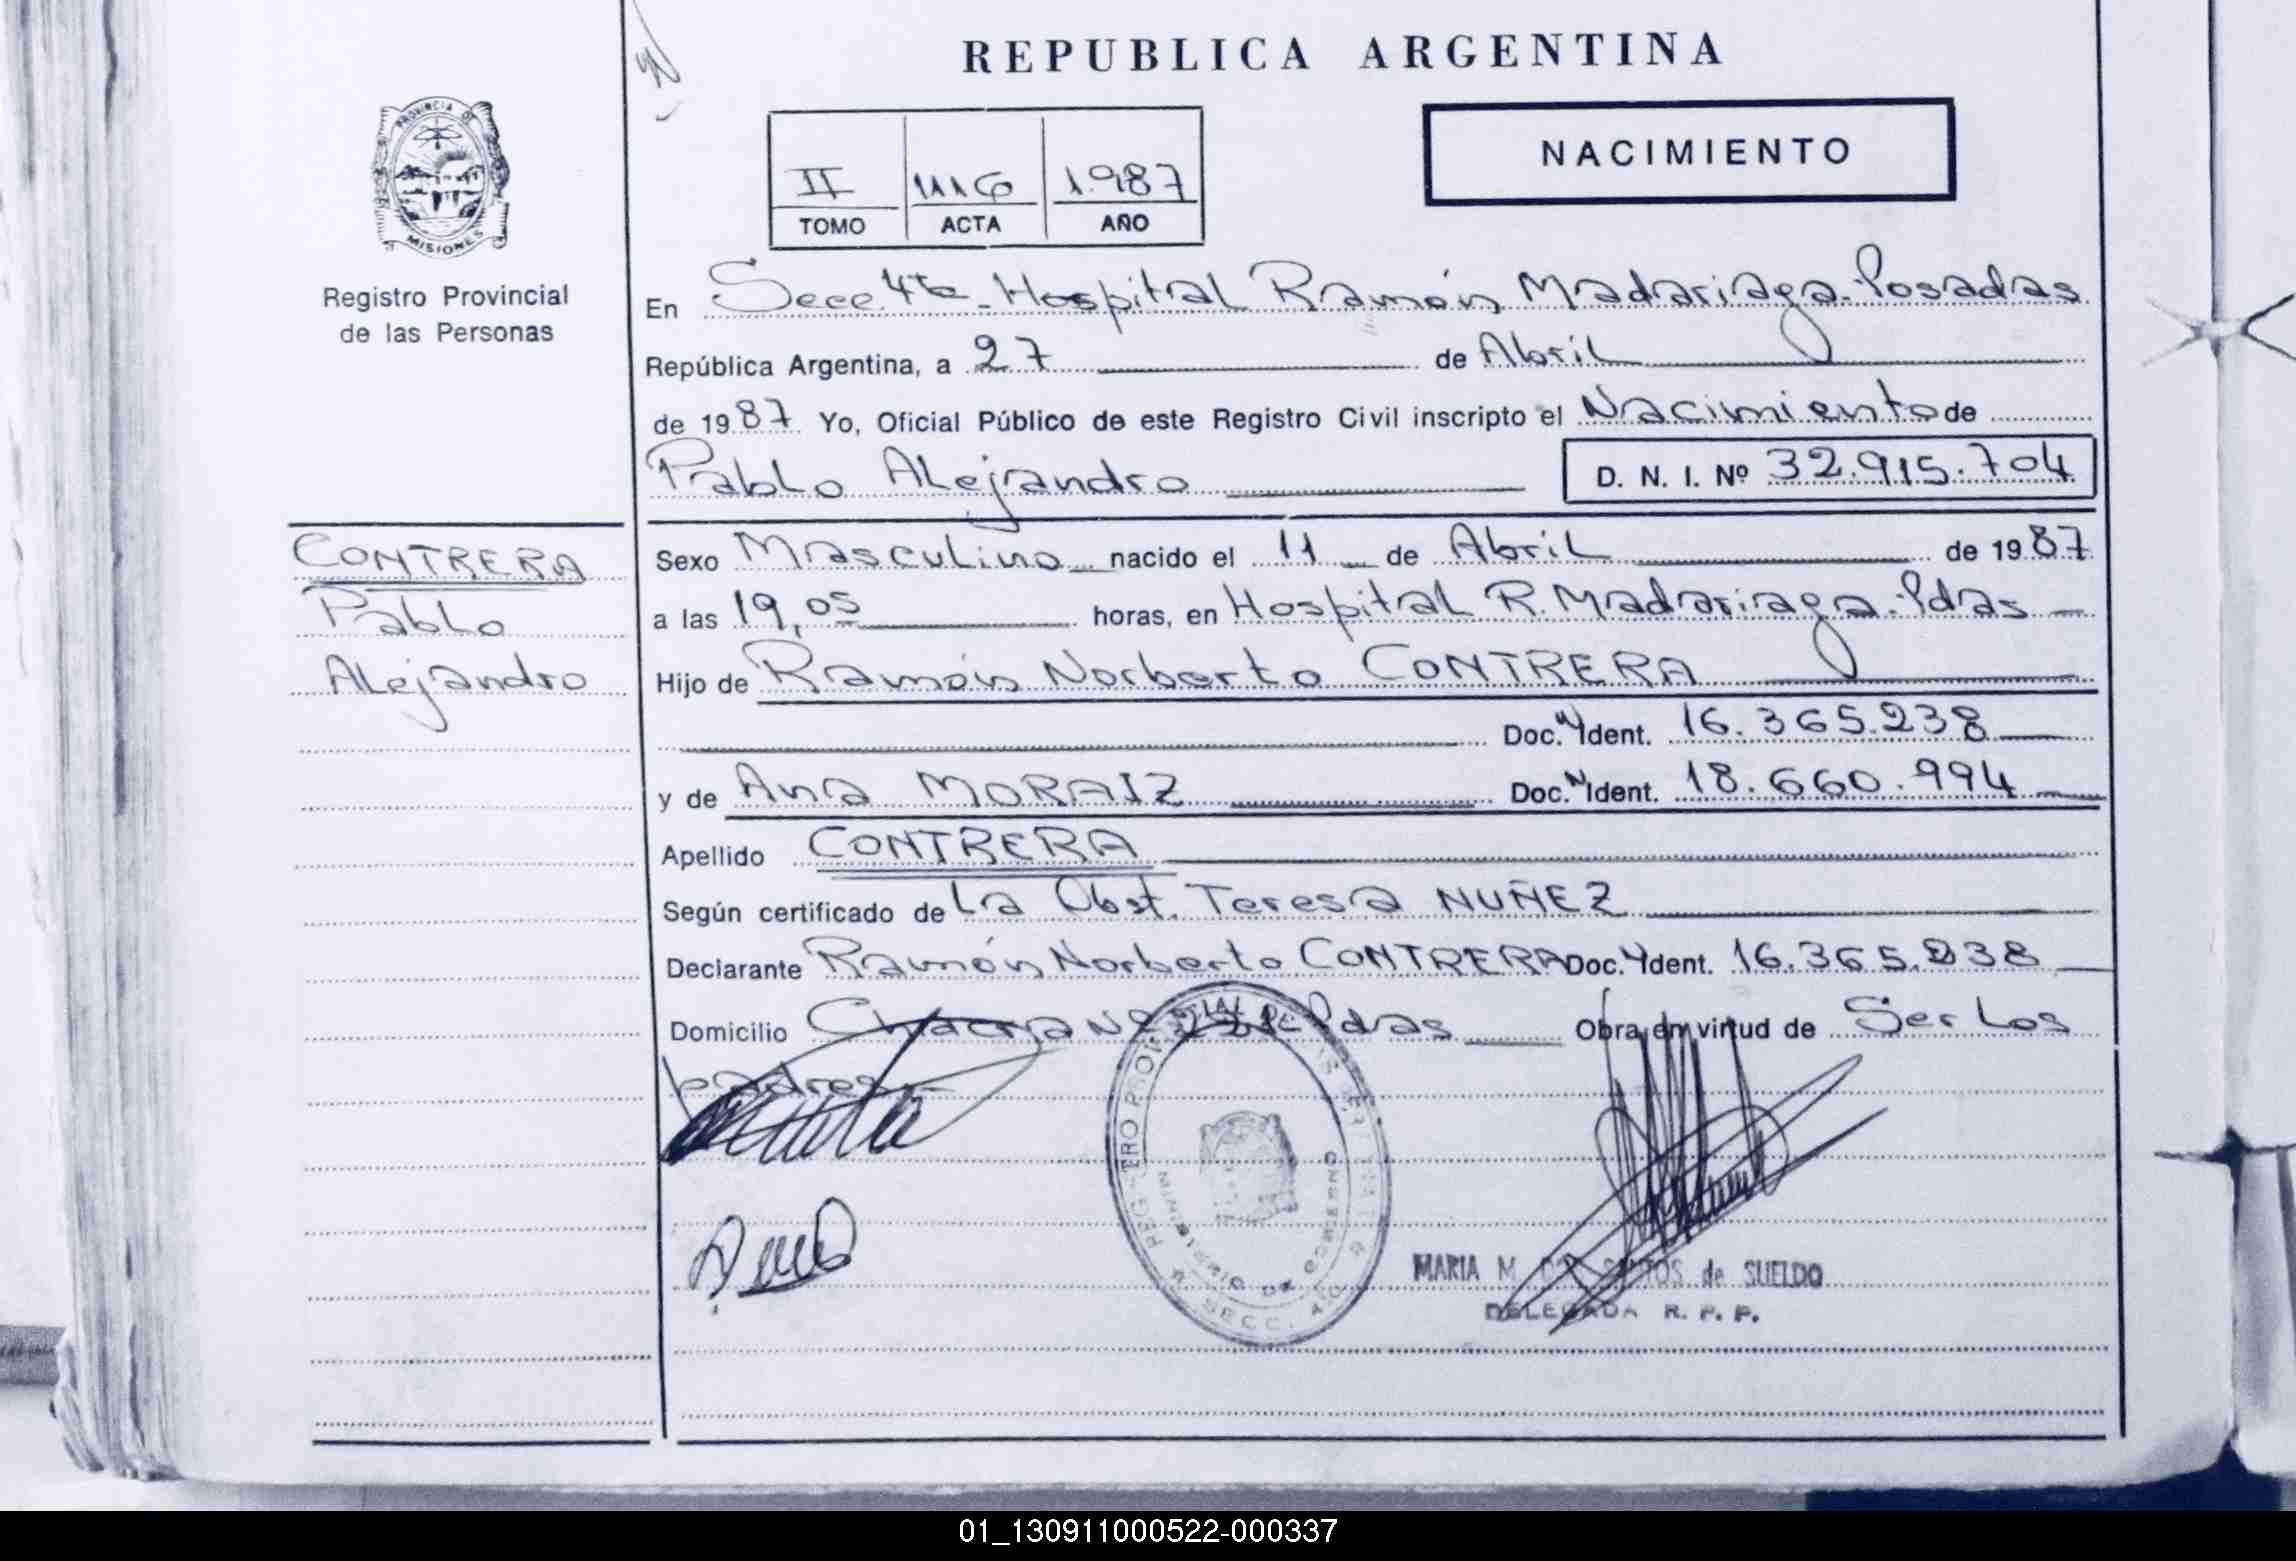 REPUBLICA ARGENTINA
PROVINCIA DE
MISIONES
Registro Provincial
de las Personas
NACIMIENTO
II 1116 1.987
TOMO ACTA AÑO
En Secc. 4ta - Hospital Ramón Madariaga - Posadas
República Argentina, a 27 de Abril
de 1987 Yo, Oficial Público de este Registro Civil inscripto el Nacimiento de
Pablo Alejandro D. N. I. Nº 32.915.704
CONTRERA
Pablo
Alejandro
Sexo Masculino nacido el 11 de Abril de 1987
a las 19,05 horas, en Hospital R. Madariaga - Pdas
Hijo de Ramón Norberto CONTRERA
Doc. Ident. 16.365.238
y de Ana MORAIZ Doc. Ident. 18.660.994
Apellido CONTRERA
Según certificado de La Obst. Teresa NUÑEZ
Declarante Ramón Norberto CONTRERA Doc. Ident. 16.365.238
Domicilio Chacra Nº Pdas Obra en virtud de Ser Los
padres.-
REGISTRO PROVINCIAL DE LAS PERSONAS
MINISTERIO DE GOBIERNO
SECC. 4
MARIA M. DOS SANTOS de SUELDO
DELEGADA R. P. P.
01_130911000522-000337